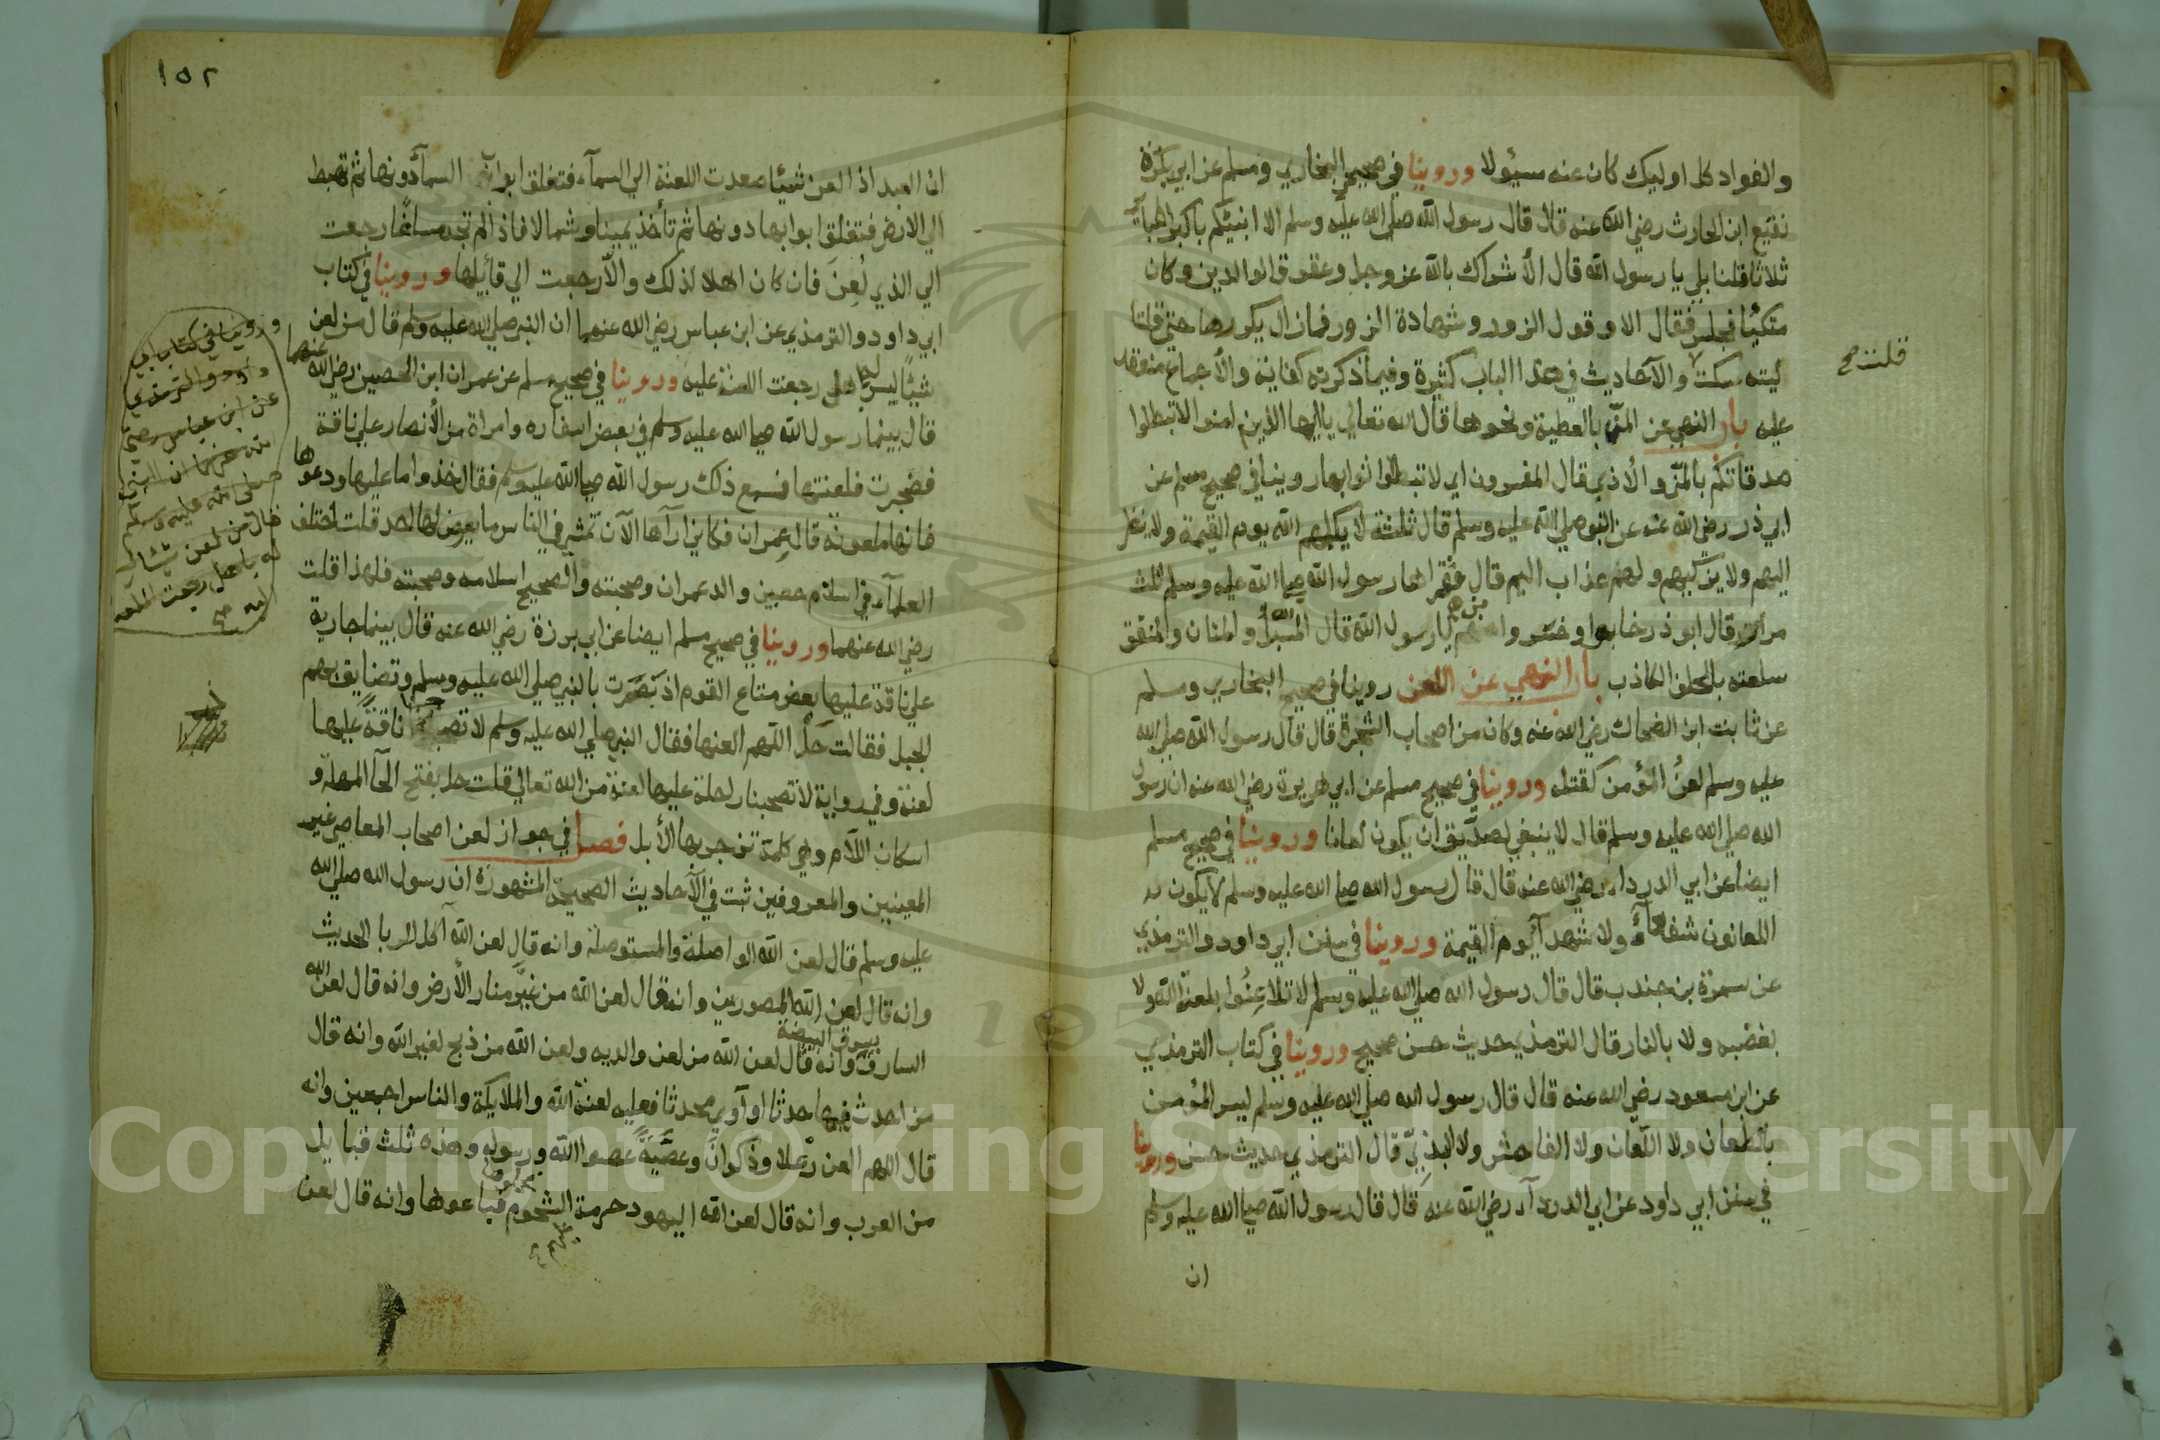 والفواد كل اوليك كان عنه مسئولا وروينا في صحيحي البخاري ومسلم عن ابي بكرة
نفيع ابن الحارث رضي الله عنه قال قال رسول الله صلى الله عليه وسلم الا انبئكم باكبر الكبائر
ثلاثا قلنا بلي يا رسول الله قال الأشراك بالله عز وجل وعقوق الوالدين وكان
متكيًا فجلس فقال الا وقول الزور وشهادة الزور فمازال يكررها حتي قلنا
ليته سكت والآحاديث في هذا الباب كثيرة وفيما ذكرته كفاية والأجماع منعقد
قلت صح
عليه باب النهي عن المنّ بالعطية ونحوها قال الله تعالي يا ايها الذين امنوا لا تبطلوا
صدقاتكم بالمنّ والأذي قال المفسرون اي لا تبطلوا ثوابها روينا في صحيح مسلم عن
ابي ذر رضي الله عنه عن النبي صلي الله عليه وسلم قال ثلثة لا يكلمهم الله يوم القيمة ولا ينظر
اليهم ولا يزكيهم ولهم عذاب اليم قال فقراها رسول الله صلى الله عليه وسلم ثلث
مرات قال ابو ذر خابوا وخسروا من هم يا رسول الله قال المسبل والمنان والمنفق
سلعته بالحلف الكاذب باب النهي عن اللعن روينا في صحيحي البخاري ومسلم
عن ثابت ابن الضحاك رضي الله عنه وكان من اصحاب الشجرة قال قال رسول الله صلي الله
عليه وسلم لعنُ المؤمن كقتله وروينا في صحيح مسلم عن ابي هريرة رضي الله عنه ان رسول
الله صلي الله عليه وسلم قال لا ينبغي لصدّيق ان يكون لعانا وروينا في صحيح مسلم
ايضا عن ابي الدرداء رضي الله عنه قال قال رسول الله صلى الله عليه وسلم لا يكون
اللعانون شفعآء ولا شهدآ يوم القيمة وروينا في سنن ابي داود والترمذي
عن سمرة بن جندب قال قال رسول الله صلي الله عليه وسلم لا تلاعِنُوا بلعنة الله ولا
بغضبه ولا بالنار قال الترمذي حديث حسن صحيح وروينا في كتاب الترمذي
عن ابن مسعود رضي الله عنه قال قال رسول الله صلي الله عليه وسلم ليس المؤمن
بالطعان ولا اللّعان ولا الفاحش ولا البذيّ قال الترمذي حديث حسن وروينا
في سنن ابي داود عن ابي الدردآء رضي الله عنه قال قال رسول الله صلى الله عليه وسلم
ان
١٥٢
ان العبد اذا لعن شيئا صعدت اللعنة الي السمآء فتغلق ابواب السمآء دونها ثم تهبط
الي الارض فتغلق ابوابها دونها ثم تأخذ يمينا وشمالا فاذا لم تجد مساغًا رجعت
الي الذي لُعِنَ فان كان اهلا لذلك والّا رجعت الي قائلها وروينا في كتاب
ابي داود والترمذي عن ابن عباس رضي الله عنهما ان النبي صلي الله عليه وسلم قال من لعن
شيئًا ليس له باهل رجعت اللعنة عليه وروينا في صحيح مسلم عن عمران ابن الحصين رضي الله عنهما
قال بينما رسول الله صلى الله عليه وسلم في بعض اسفاره وامراة من الأنصار علي ناقة
فضجرت فلعنتها فسمع ذلك رسول الله صلى الله عليه وسلم فقال خذوا ما عليها ودعوها
فانها ملعونة قال عمران فكاني اراها الآن تمشي في الناس ما يعرض لها احد قلت اختلف
العلمآء في اسلام حصين والد عمران وصحبته والصحيح اسلامه وصحبته فلهذا قلت
رضي الله عنهما وروينا في صحيح مسلم ايضا عن ابي برزة رضي الله عنه قال بينما جارية
علي ناقة عليها بعض متاع القوم اذ بَصُرَت بالنبي صلي الله عليه وسلم وتضايق بهم
الجبل فقالت حَلْ اللهم العنها فقال النبي صلي الله عليه وسلم لا تصاحبنا ناقةً عليها
لعنة وفي رواية لا تصحبنا راحلة عليها لعنة من الله تعالي قلت حل بفتح الحآ المهملة و
اسكان اللّام وهي كلمة تزجر بها الأبل فصل في جواز لعن اصحاب المعاصي غير
المعينين والمعروفين ثبت في الآحاديث الصحيحة المشهورة ان رسول الله صلي الله
عليه وسلم قال لعن الله الواصلة والمستوصلة وانه قال لعن الله آكل الربا الحديث
وانه قال لعن الله المصورين وانه قال لعن الله من غيّر منار الأرض وانه قال لعن الله
السارق يسرق البيضة وانه قال لعن الله من لعن والديه ولعن الله من ذبح لغير الله وانه قال
من احدث فيها حدثا او آوي محدثا فعليه لعنة الله والملايكة والناس اجمعين وانه
قال اللهم العن رعلا وذكوان وعصَيَّة عصوا الله ورسوله وهذه ثلث قبايل
من العرب وانه قال لعن الله اليهود حرمت عليهم الشحوم فباعوها وانه قال لعن
وروينا في كتاب ابي
داود والترمذي
عن ابن عباس رضي
الله عنهما ان النبي
صلى الله عليه وسلم
قال من لعن شيئا ليس
له باهل رجعت اللعنة
عليه صح
Copyright © King Saud University
1957